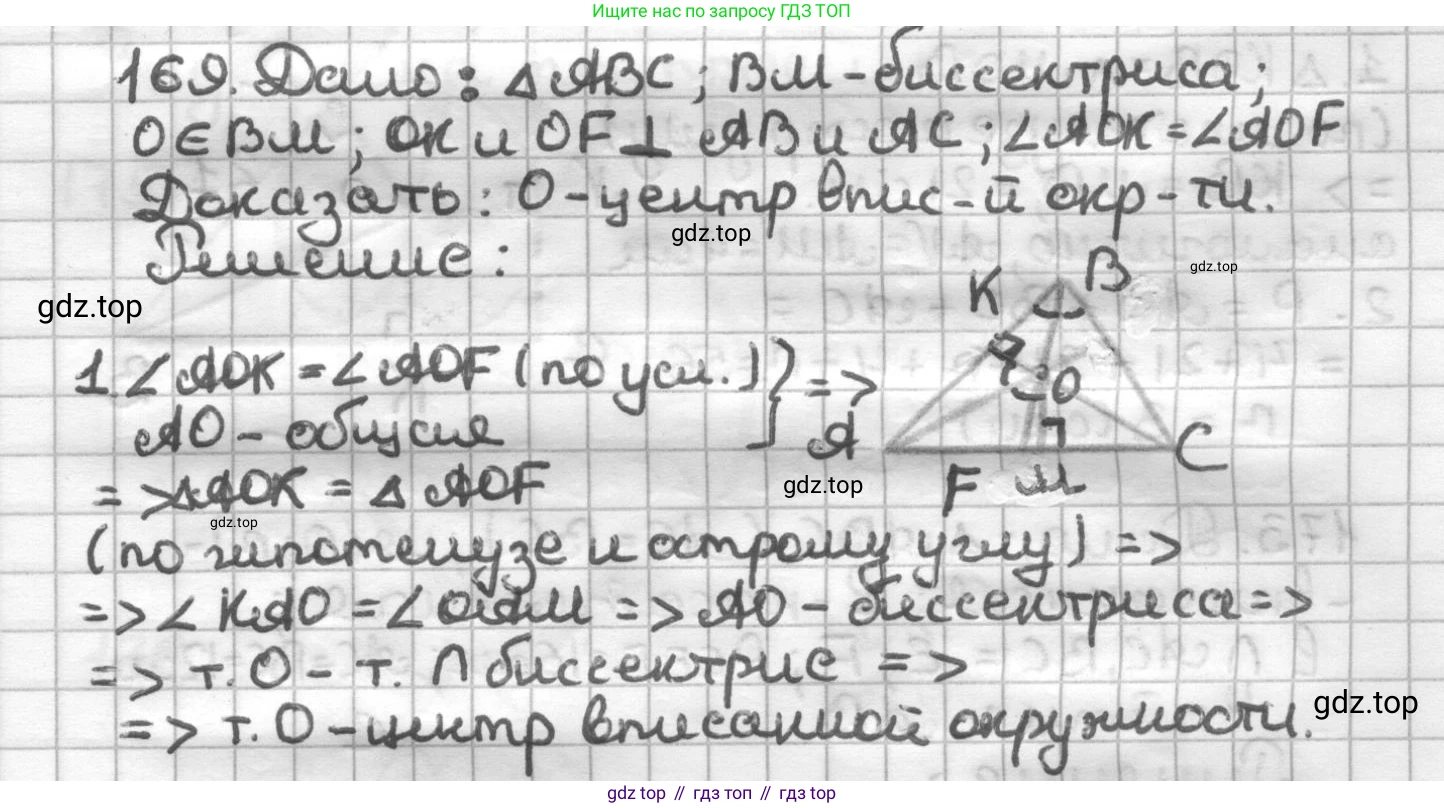 Ищите нас по запросу ГДЗ ТОП
169. Дано: △ABC; BM-биссектриса;
O∈BM; OK и OF⊥ AB и AC; ∠AOK=∠AOF
Доказать: O-центр впис-й окр-ти.
gdz.top
Решение:
gdz.top
gdz.top
K B
1. ∠AOK=∠AOF (по усл.) } =>
AO-общая
O
A C
F M
=> △AOK = △AOF
gdz.top
gdz.top
(по гипотенузе и острому углу) =>
=> ∠KAO = ∠OAM => AO - биссектриса =>
=> т. O - т. ∩ биссектрис =>
=> т. O - центр вписанной окружности.
gdz.top
gdz top // гдз топ // гдз top